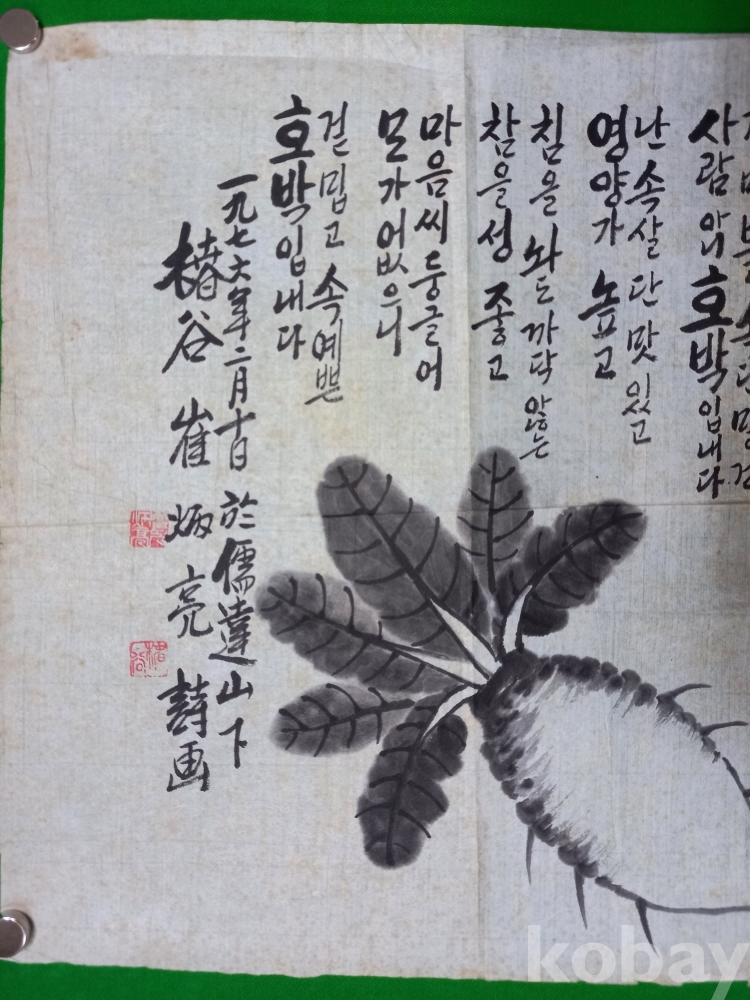 사람 아니 호박입내다
난 속살 단맛 있고
영양가 높고
침을 놔도 까닥 않는
참을성 좋고
마음씨 둥글어
모가 없으니
겉 밉고 속 예쁜
호박입내다
一九七六年二月十日 於儒達山下
椿谷 崔炳亮 詩画
kobay